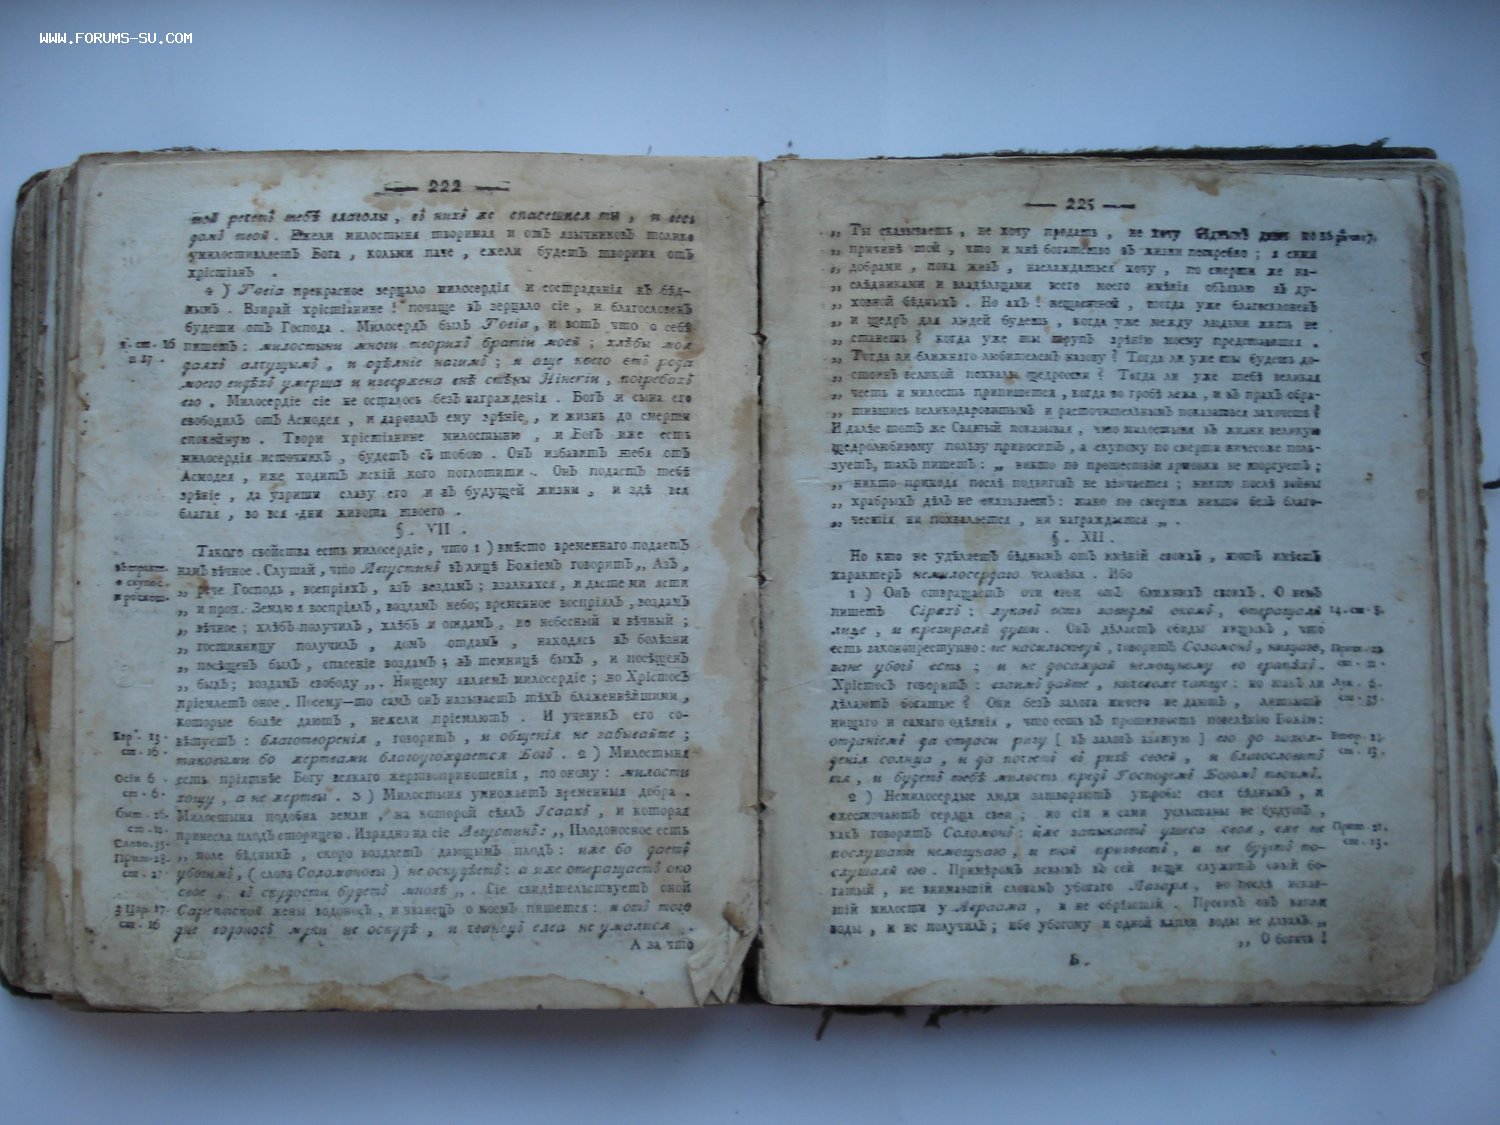 WWW.FORUMS-SU.COM
— 222 —
твой речетъ тебѣ глаголы, въ нихъ же спасешися ты, и весь
домъ твой. Ежели милостыня творимая и отъ язычниковъ толико
умилостивляетъ Бога, кольми паче, ежели будетъ творима отъ
хрістіанъ.
4) Товіа прекрасное зерцало милосердія и состраданія къ бѣд-
нымъ. Взирай хрістіанине! почаще въ зерцало сіе, и благословенъ
будеши отъ Господа. Милосердъ былъ Товіа, и вотъ что о себѣ
ст. 16
и 17.
пишетъ: милостыни многи творихъ братіи моей; хлѣбы моя
даяхъ алчущымъ, и одѣяніе нагимъ; и аще коего отъ рода
моего видѣхъ умерша и извержена внѣ стѣны Нінегіи, погребахъ
его. Милосердіе сіе не осталось безъ награжденія. Богъ и сына его
свободилъ отъ Асмодея, и даровалъ ему зрѣніе, и жизнь до смерти
спокойную. Твори хрістіанине милостыню, и Богъ иже есть
милосердія источникъ, будетъ съ тобою. Онъ избавитъ тебя отъ
Асмодея, иже ходитъ искій кого поглотити. Онъ подастъ тебѣ
зрѣніе, да узриши славу его и въ будущей жизни, и здѣ вся
благая, во вся дни живота твоего.
§. VII.
Такого свойства есть милосердіе, что 1) вмѣсто временнаго подаетъ
о скупос.
и роскош.
намъ вѣчное. Слушай, что Августинъ въ лицѣ Божіемъ говоритъ „ Азъ,
„ рече Господь, воспріяхъ, азъ воздамъ; взалкахся, и дасте ми ясти
„ и проч. Землю я воспріялъ, воздамъ небо; временное воспріялъ, воздамъ
„ вѣчное; хлѣбъ получилъ, хлѣбъ и отдамъ, но небесный и вѣчный;
„ гостинницу получилъ, домъ отдамъ, находясь въ болѣзни
„ посѣщенъ былъ, спасеніе воздамъ; въ темницѣ быхъ, и посѣщенъ
„ былъ; воздамъ свободу „. Нищему являемъ милосердіе; но Хрістосъ
пріемлетъ оное. Посему-то самъ онъ называетъ тѣхъ блаженнѣйшими,
которые болѣе даютъ, нежели пріемлютъ. И ученикъ его со-
Евр. 13.
ст. 16.
вѣтуетъ: благотворенія, говоритъ, и общенія не забывайте;
таковыми бо жертвами благоугождается Богъ. 2) Милостыня
Осіи 6.
ст. 6.
есть пріятнѣе Богу всякаго жертвоприношенія, по оному: милости
хощу, а не жертвы. 3) Милостыня умножаетъ временная добра.
Быт. 26.
ст. 12.
Милостыня подобна земли, на которой сѣялъ Ісаакъ, и которая
Слово. 35.
принесла плодъ сторицею. Изрядно на сіе Августинъ: „ Плодоносное есть
Прит. 28.
ст. 27.
„ поле бѣдныхъ, скоро воздаетъ дающымъ плодъ: иже бо даетъ
убогимъ, (слова Соломоновы) не оскудѣетъ: а иже отвращаетъ око
свое, въ скудости будетъ мнозѣ „. Сіе свидѣтельствуетъ оной
3 Цар. 17.
ст. 16
Сарептской жены водоносъ, и чванецъ о коемъ пишется: и отъ того
дне водоносъ муки не оскудѣ, и чванецъ елеа не умалися.
А за что
— 225 —
„ Ты сказываешь, не хочу предать, не хочу бѣднымъ дать
„ причинѣ той, что и мнѣ богатство въ жизни потребно; я сими
„ добрами, пока живъ, наслаждаться хочу, по смерти же на-
„ слѣдниками и владѣльцами всего моего имѣнія объявлю въ ду-
„ ховной бѣдныхъ. Но ахъ! нещастной, тогда уже благосклоненъ
„ и щедръ для людей будешь, когда уже между людьми жить не
„ станешь? когда уже ты трупъ зрѣнію моему представишся.
„ Тогда ли ближняго любителемъ назову? Тогда ли уже ты будешь до-
„ стоинъ великой похвалы щедрости? Тогда ли уже тебѣ великая
„ честь и милость припишется, когда во гробѣ лежа, и въ прахъ обра-
„ тившись великодаровитымъ и расточительнымъ показаться захочешь?
И далѣе тотъ же Святый показывая, что милостыня въ жизни великую
щедролюбивому пользу приноситъ, а скупому по смерти ничесоже поль-
зуетъ, такъ пишетъ: „ никто по прошествіи ярмонки не торгуетъ;
„ никто приходя послѣ подвиговъ не вѣнчается; никто послѣ войны
„ храбрыхъ дѣлъ не оказываетъ: тако по смерти никто безъ благо-
„ честія ни похваляется, ни награждается „.
§. XII.
Но кто не удѣляетъ бѣднымъ отъ имѣній своихъ, тотъ имѣетъ
характеръ немилосердаго человѣка. Ибо
1) Онъ отвращаетъ очи свои отъ ближнихъ своихъ. О немъ
пишетъ Сірахъ: лукавъ есть завидяй окомъ, отвращаяй
14. ст. 8.
лице, и презираяй души. Онъ дѣлаетъ обиды нищымъ, что
есть законопреступно: не насильствуй, говоритъ Соломонъ, нищаго,
Прит. 22.
ст. 22.
зане убогъ есть; и не досаждай немощному во вратѣхъ.
Хрістосъ говоритъ: взаимъ дайте, ничесоже чающе: но такъ ли
Лук. 6.
ст. 35.
дѣлаютъ богатые? Они безъ залога ничего не даютъ, лишаютъ
нищаго и самаго одѣянія, что есть въ противность повелѣнію Божію:
отданіемъ да отдаси ризу [въ залогъ взятую] его до захож-
Втор. 24.
ст. 13.
денія солнца, и да поспитъ въ ризѣ своей, и благословитъ
тя, и будетъ тебѣ милость предъ Господемъ Богомъ твоимъ.
2) Немилосердые люди затворяютъ утробы своя бѣднымъ, и
ожесточаютъ сердца свои; но сіи и сами услышаны не будутъ,
какъ говоритъ Соломонъ: иже затыкаетъ ушеса своя, еже не
Прит. 21.
ст. 13.
послушати немощнаго, и той призоветъ, и не будетъ по-
слушаяй его. Примѣромъ явнымъ въ сей вещи служитъ оный бо-
гатый, не внимавшій словамъ убогаго Лазаря, но послѣ искав-
шій милости у Авраама, и не обрѣтшій. Просилъ онъ капли
воды, и не получилъ; ибо убогому и одной капли воды не давалъ „
„ О богачь!
Б.